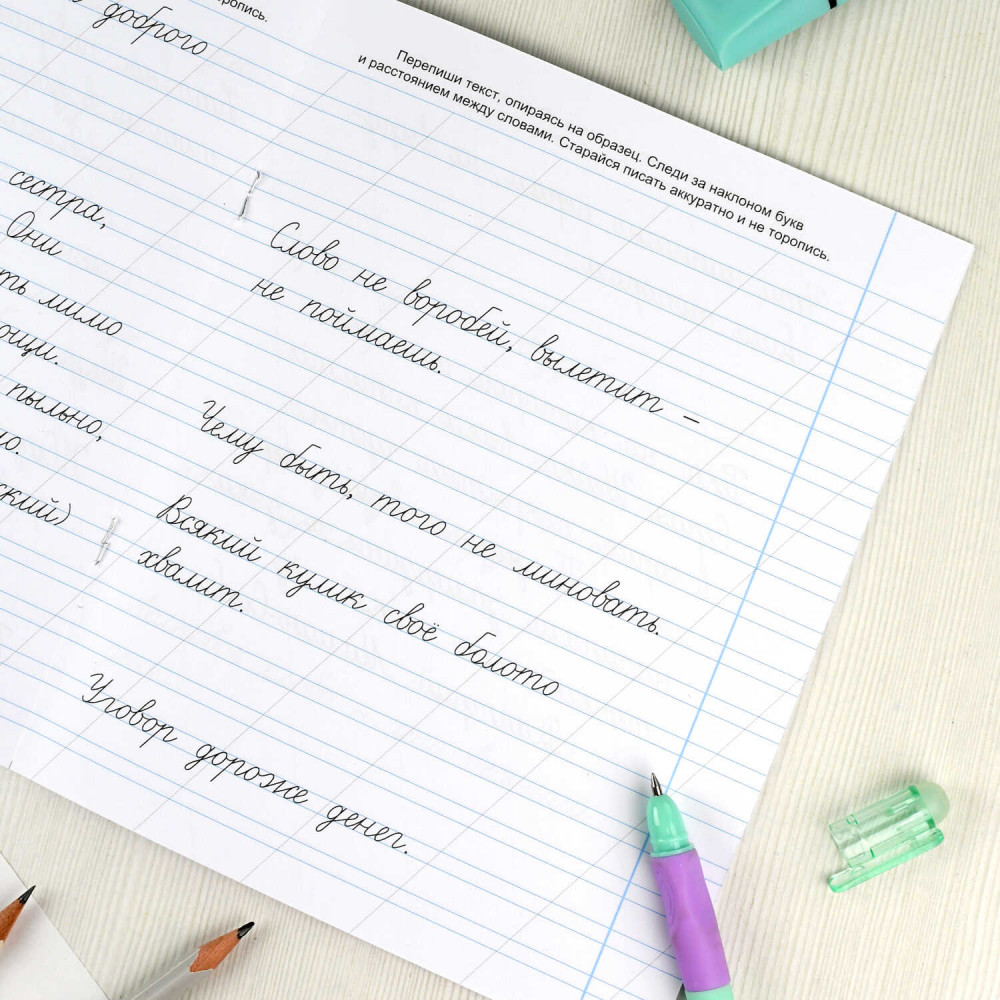 доброго
сестра,
Они
мимо
пыльно,
Перепиши текст, опираясь на образец. Следи за наклоном букв
и расстоянием между словами. Старайся писать аккуратно и не торопись.
Слово не воробей, вылетит –
не поймаешь.
Чему быть, того не миновать.
Всякий кулик своё болото
хвалит.
Уговор дороже денег.